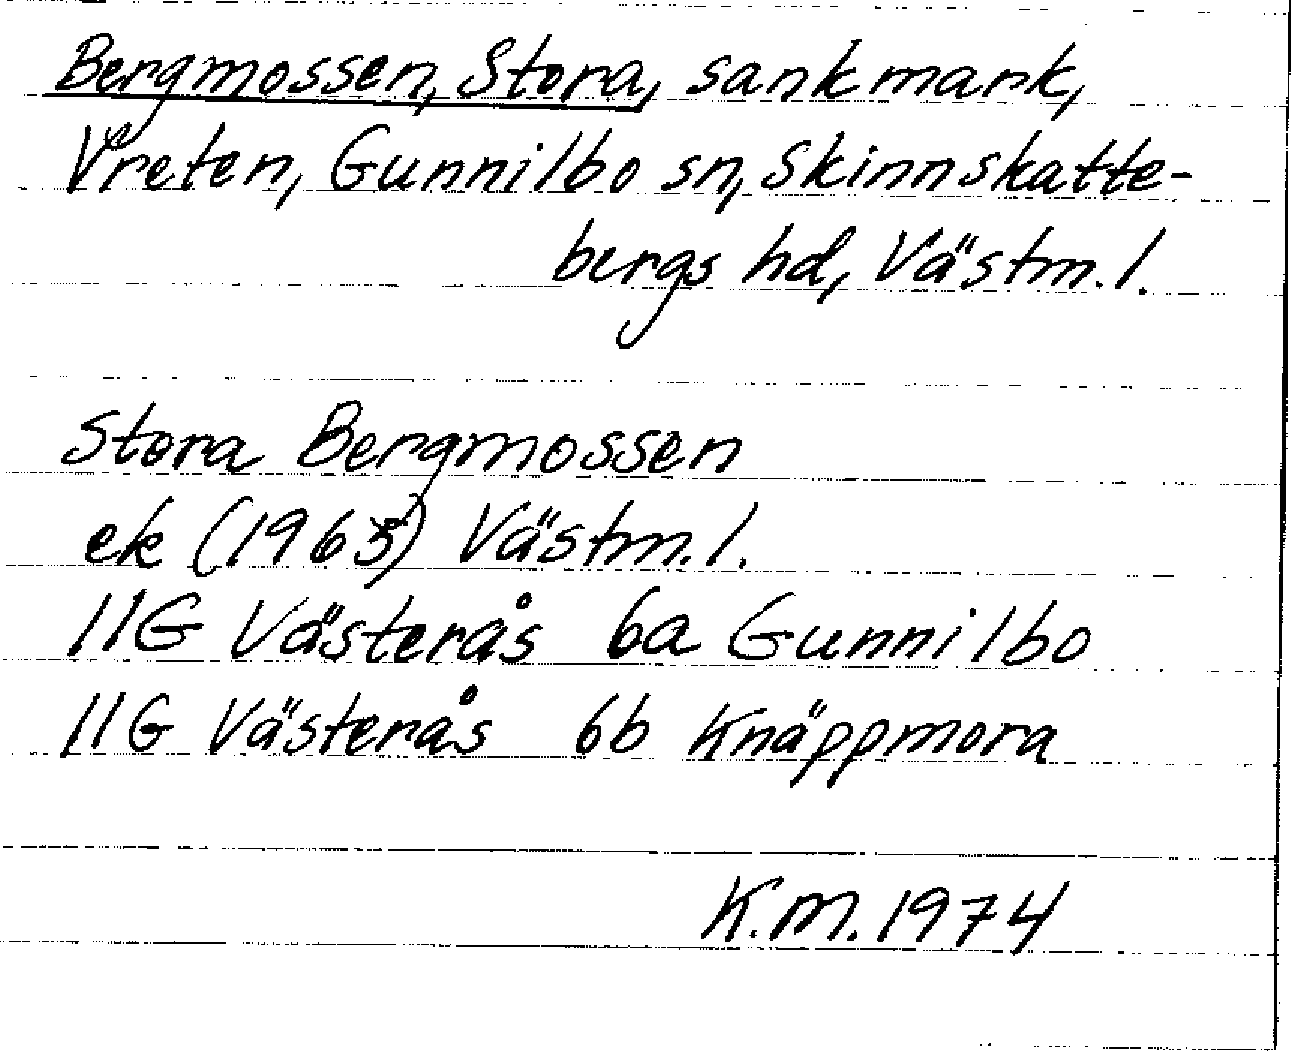 Bergmossen, Stora, sankmark,
Vreten, Gunnilbo sn, Skinnskatte-
bergs hd, Västm.l.
Stora Bergmossen
ek (1965) Västm.l.
11G Västerås 6a Gunnilbo
11G Västerås 6b Knäppmora
K.M. 1974